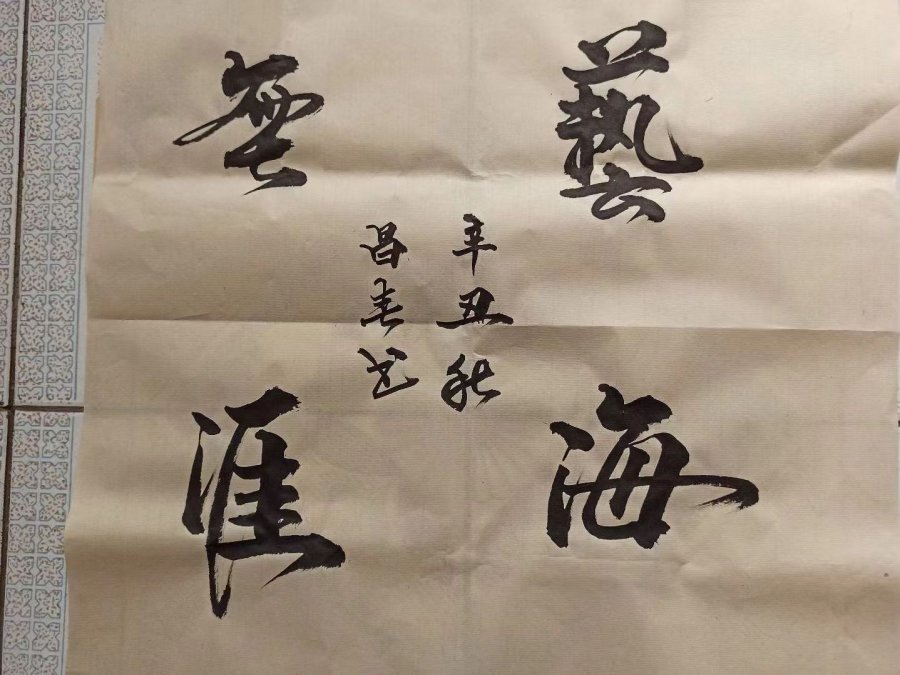 藝海
無涯
辛丑秋
昌春书